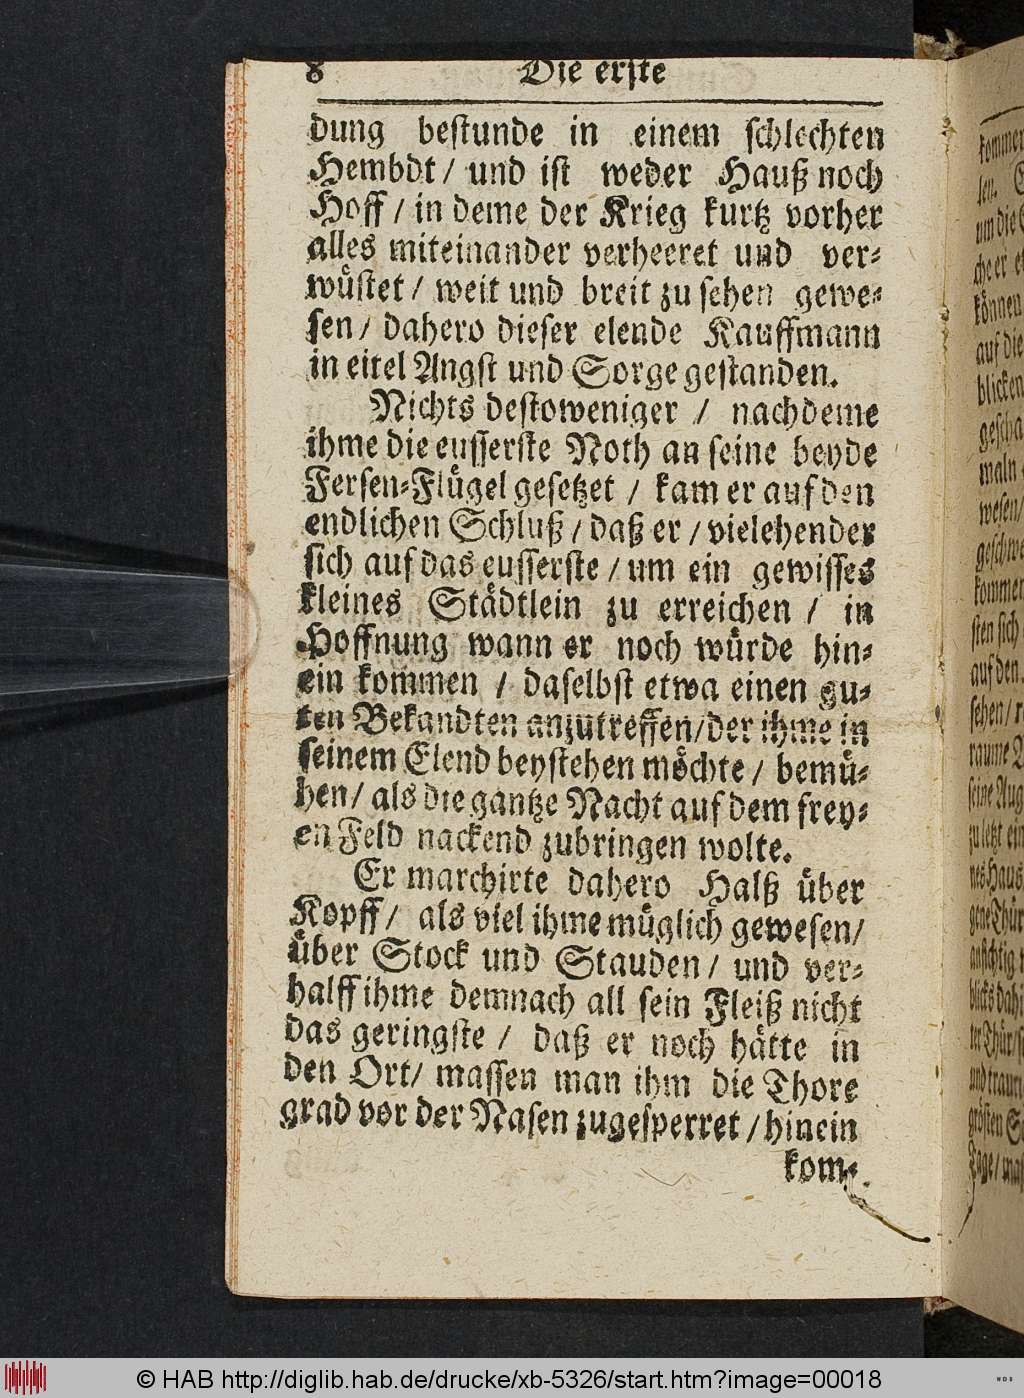 8 Die erste
dung bestunde in einem schlechten
Hembdt / und ist weder Hauß noch
Hoff / in deme der Krieg kurtz vorher
alles miteinander verheeret und ver-
wüstet / weit und breit zu sehen gewe-
sen / dahero dieser elende Kauffmann
in eitel Angst und Sorge gestanden.
Nichts destoweniger / nachdeme
ihme die eusserste Noth an seine beyde
Fersen-Flügel gesetzet / kam er auf den
endlichen Schluß / daß er / vielehender
sich auf das eusserste / um ein gewisses
kleines Städtlein zu erreichen / in
Hoffnung wann er noch würde hin-
ein kommen / daselbst etwa einen gu-
ten Bekandten anzutreffen / der ihme in
seinem Elend beystehen möchte / bemü-
hen / als die gantze Nacht auf dem frey-
en Feld nackend zubringen wolte.
Er marchirte dahero Halß über
Kopff / als viel ihme müglich gewesen /
über Stock und Stauden / und ver-
halff ihme demnach all sein Fleiß nicht
das geringste / daß er noch hätte in
den Ort / massen man ihm die Thore
grad vor der Nasen zugesperret / hinein
kom-
kommen
sen.
um die
che er
können
auf die
blicken
gescha
maln
wesen/
geschwe
kommen
sten sich
auf den
sehen /
raume
seine Aug
zu letzt ein
nes Haus
gene Thür
ansichtig
blicks dahi
ter Thür /
und traur
grösten
Tage / mas
© HAB http://diglib.hab.de/drucke/xb-5326/start.htm?image=00018
WDB